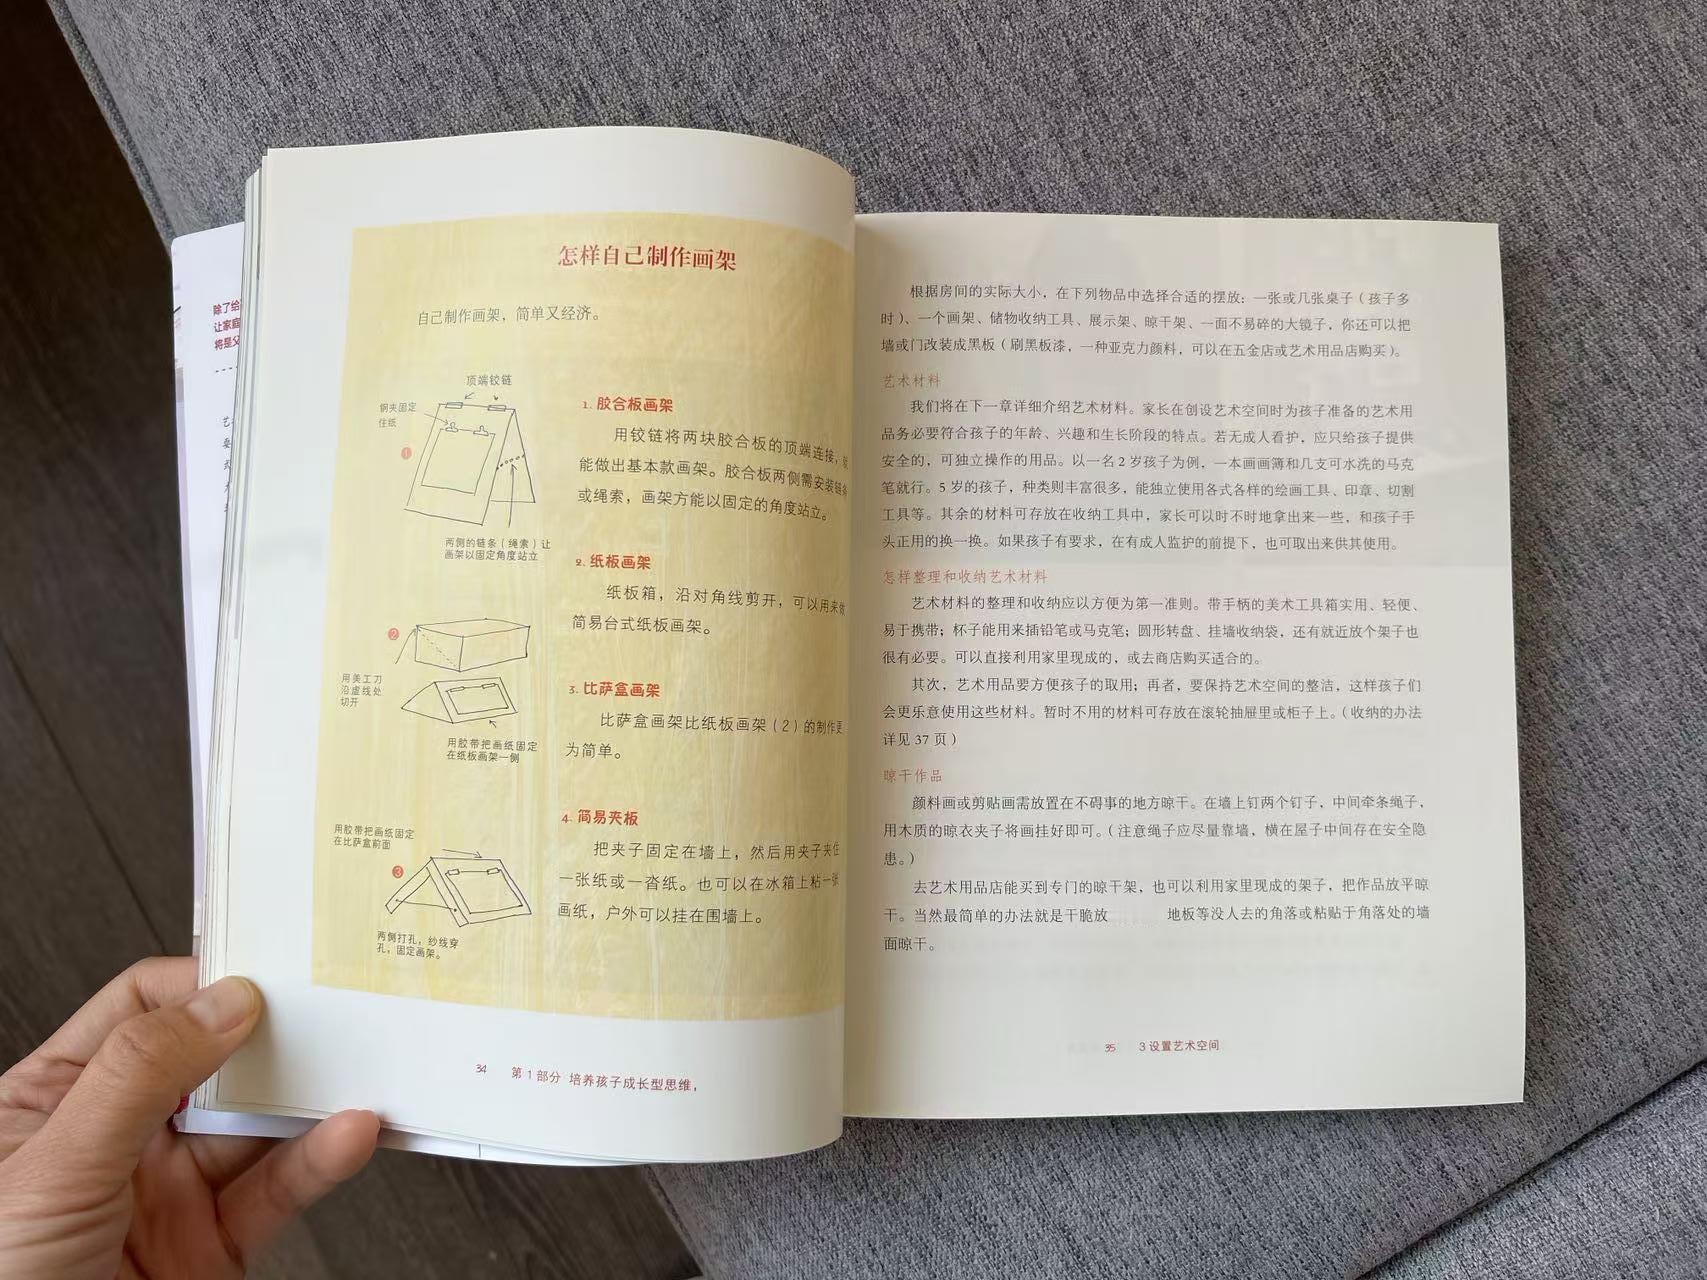 除了给
让家庭
将是父
怎样自己制作画架
自己制作画架，简单又经济。
顶端铰链
钢夹固定
住纸
1
两侧的链条（绳索）让
画架以固定角度站立
2
用美工刀
沿虚线处
切开
用胶带把画纸固定
在纸板画架一侧
用胶带把画纸固定
在比萨盒前面
3
两侧打孔，纱线穿
孔，固定画架。
1. 胶合板画架
用铰链将两块胶合板的顶端连接，
能做出基本款画架。胶合板两侧需安装链条
或绳索，画架方能以固定的角度站立。
2. 纸板画架
纸板箱，沿对角线剪开，可以用来做
简易台式纸板画架。
3. 比萨盒画架
比萨盒画架比纸板画架（2）的制作更
为简单。
4. 简易夹板
把夹子固定在墙上，然后用夹子夹住
一张纸或一沓纸。也可以在冰箱上粘一张
画纸，户外可以挂在围墙上。
34 第 1 部分 培养孩子成长型思维，
根据房间的实际大小，在下列物品中选择合适的摆放：一张或几张桌子（孩子多
时）、一个画架、储物收纳工具、展示架、晾干架、一面不易碎的大镜子，你还可以把
墙或门改装成黑板（刷黑板漆，一种亚克力颜料，可以在五金店或艺术用品店购买）。
艺术材料
我们将在下一章详细介绍艺术材料。家长在创设艺术空间时为孩子准备的艺术用
品务必要符合孩子的年龄、兴趣和生长阶段的特点。若无成人看护，应只给孩子提供
安全的，可独立操作的用品。以一名 2 岁孩子为例，一本画画簿和几支可水洗的马克
笔就行。5 岁的孩子，种类则丰富很多，能独立使用各式各样的绘画工具、印章、切割
工具等。其余的材料可存放在收纳工具中，家长可以时不时地拿出来一些，和孩子手
头正用的换一换。如果孩子有要求，在有成人监护的前提下，也可取出来供其使用。
怎样整理和收纳艺术材料
艺术材料的整理和收纳应以方便为第一准则。带手柄的美术工具箱实用、轻便、
易于携带；杯子能用来插铅笔或马克笔；圆形转盘、挂墙收纳袋，还有就近放个架子也
很有必要。可以直接利用家里现成的，或去商店购买适合的。
其次，艺术用品要方便孩子的取用；再者，要保持艺术空间的整洁，这样孩子们
会更乐意使用这些材料。暂时不用的材料可存放在滚轮抽屉里或柜子上。（收纳的办法
详见 37 页）
晾干作品
颜料画或剪贴画需放置在不碍事的地方晾干。在墙上钉两个钉子，中间牵条绳子，
用木质的晾衣夹子将画挂好即可。（注意绳子应尽量靠墙，横在屋子中间存在安全隐
患。）
去艺术用品店能买到专门的晾干架，也可以利用家里现成的架子，把作品放平晾
干。当然最简单的办法就是干脆放 地板等没人去的角落或粘贴于角落处的墙
面晾干。
35 3 设置艺术空间